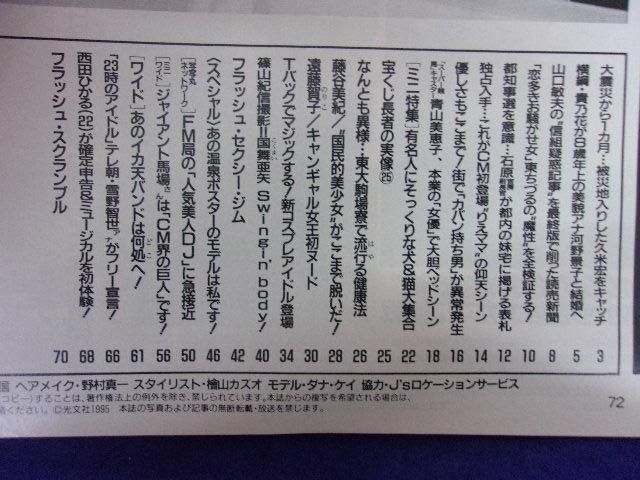 大震災から1カ月…被災地入りした久米宏をキャッチ 3
横綱・貴乃花が8歳年上の美貌アナ河野景子と結婚へ 5
山口敏夫の“信組疑惑記事”を最終版で削った読売新聞 8
「恋多きお騒がせ女」東ちづるの“魔性”を全検証する! 10
都知事選を意識…石原慎太郎が都内の妹宅に掲げる表札 12
独占入手…これがCM初登場“りえママ”の仰天シーン 14
優しさもここまで!街で「カバン持ち男」が異常発生 16
“スーパー競馬”キャスター青山美恵子、本業の「女優」で大胆ベッドシーン 18
[ミニ特集]有名人にそっくりな犬&猫大集合 22
宝くじ長者の実像㉕ 25
なんとも異様…東大駒場寮で流行る健康法 26
藤谷美紀/“国民的美少女”がここまで脱いだ! 28
遠藤賀子/キャンギャル女王初ヌード 30
Tバックでマジックする!新コスプレアイドル登場 34
篠山紀信撮影=国舞亜矢 Swingin' body! 40
フラッシュ・セクシー・ジム 42
〈スペシャル〉あの温泉ポスターのモデルは私です! 46
[写楽丸ネットワーク]FM局の「人気美人DJ」に急接近 50
[ミニワイド]ジャイアント馬場さんは「CM界の巨人」です! 56
[ワイド]あのイカ天バンドは何処へ! 61
「23時のアイドル」テレ朝・雪野智世アナがフリー宣言! 66
西田ひかる(22)が確定申告&ミュージカルを初体験! 68
フラッシュ・スクランブル 70
ヘアメイク・野村真一 スタイリスト・檜山カスオ モデル・ダナ・ケイ 協力・J'sロケーションサービス
コピー)することは、著作権法上の例外を除き、禁じられています。本誌からの複写を希望される場合は、
絡ください。©光文社1995 本誌の写真および記事の無断転載・放送を禁じます。
72